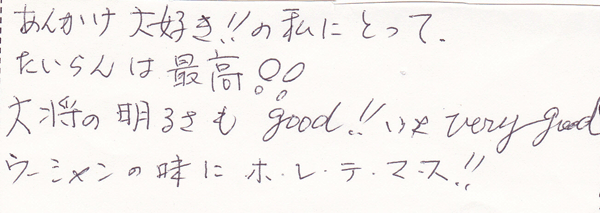 あんかけ大好き!!の私にとって、
たいらんは最高!!
大将の明るさもgood!!いえvery good
ラーメンの味にホ・レ・テ・マース!!